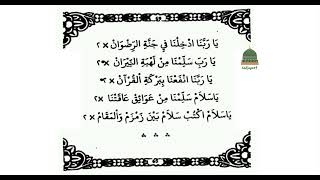 يَا رَبَّنَا ادْخِلْنَا فِي جَنَّةِ الرِّضْوَانْ ×٢
يَا رَبِّ سَلِّمْنَا مِنْ لَهْبَةِ النِّيْرَانْ ×٢
يَا رَبَّنَا انْفَعْنَا بِبَرَكَةِ الْقُرْآنْ ×٢
يَاسَلَامْ سَلِّمْنَا مِنْ عَوَائِقْ عَاقَتْنَا ×٢
يَاسَلَامْ اكْتُبْ سَلَامْ بَيْنَ زَمْزَمْ وَالْمَقَامْ ×٢